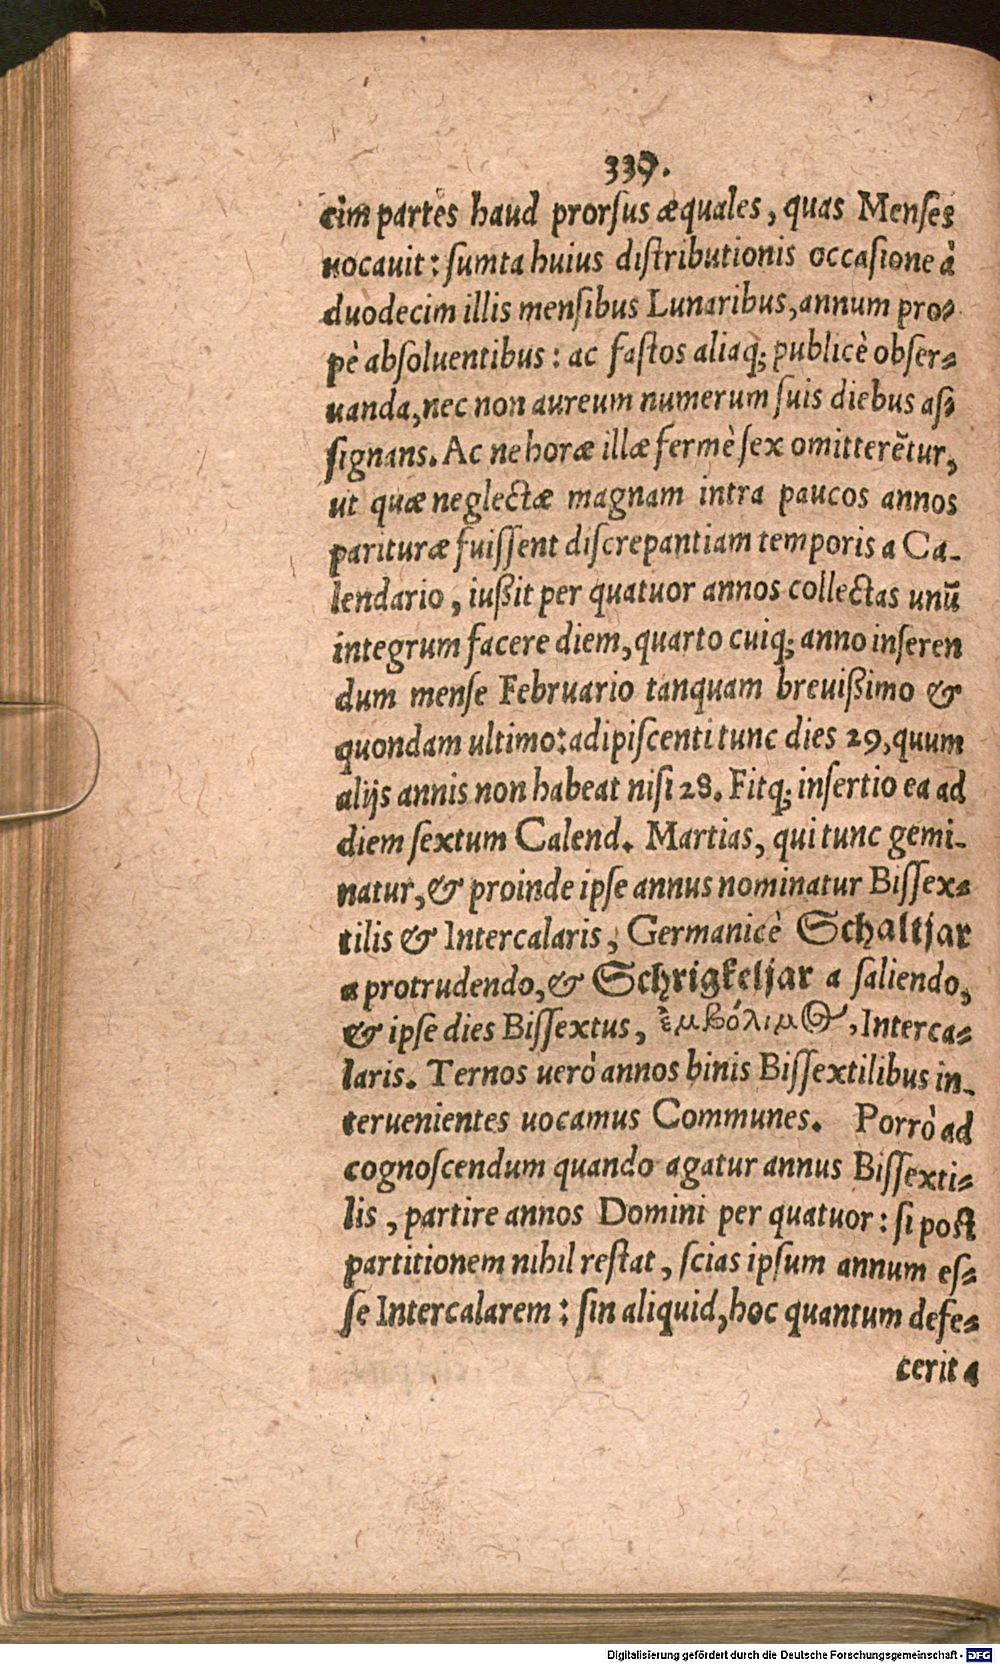 339.
cim partes haud prorſus æquales, quas Menſes
uocauit: ſumta huius diſtributionis occaſione à
duodecim illis menſibus Lunaribus, annum pro⸗
pè abſoluentibus: ac faſtos aliaq; publicè obſer⸗
uanda, nec non aureum numerum ſuis diebus aſ⸗
ſignans. Ac ne horæ illæ fermè ſex omitterẽtur,
ut quæ neglectæ magnam intra paucos annos
parituræ fuiſſent diſcrepantiam temporis a Ca-
lendario, iußit per quatuor annos collectas unũ
integrum facere diem, quarto cuiq; anno inſeren
dum menſe Februario tanquam breuißimo &
quondam ultimo: adipiſcenti tunc dies 29, quum
alijs annis non habeat niſi 28. Fitq; inſertio ea ad
diem ſextum Calend. Martias, qui tunc gemi-
natur, & proinde ipſe annus nominatur Biſſex⸗
tilis & Intercalaris, Germanicè Schaltjar
a protrudendo, & Schrigkeljar a ſaliendo,
& ipſe dies Biſſextus, ἐμβόλιμος, Interca⸗
laris. Ternos uerò annos binis Biſſextilibus in-
teruenientes uocamus Communes. Porrò ad
cognoſcendum quando agatur annus Biſſexti⸗
lis, partire annos Domini per quatuor: ſi poſt
partitionem nihil reſtat, ſcias ipſum annum eſ⸗
ſe Intercalarem: ſin aliquid, hoc quantum defe⸗
cerit a
Digitalisierung gefördert durch die Deutsche Forschungsgemeinschaft - DFG